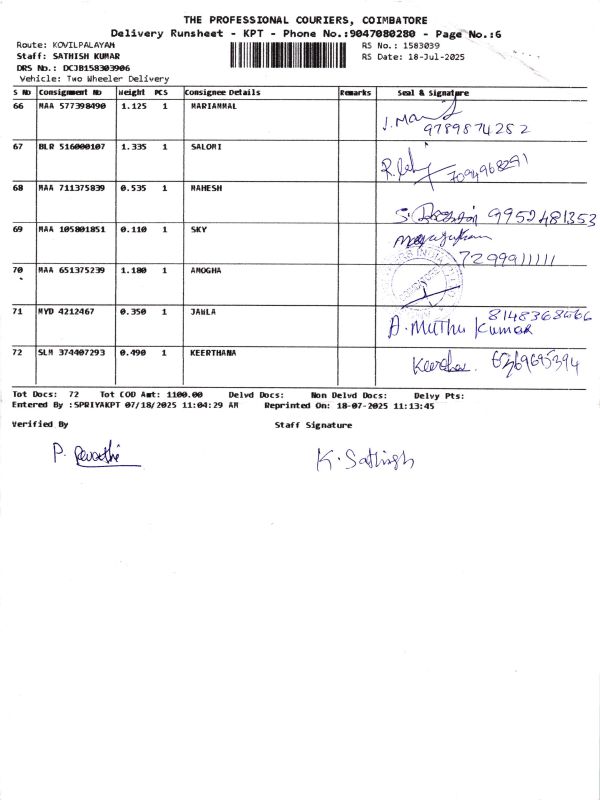 THE PROFESSIONAL COURIERS, COIMBATORE
Delivery Runsheet - KPT - Phone No.:9047080280 - Page No.:6
Route: KOVILPALAYAM RS No.: 1583039
Staff: SATHISH KUMAR RS Date: 18-Jul-2025
DRS No.: DCJB158303906
Vehicle: Two Wheeler Delivery
S No Consignment No Weight PCS Consignee Details Remarks Seal & Signature
66 MAA 577398490 1.125 1 MARIAMMAL
9789874282
67 BLR 516000107 1.335 1 SALOMI
7094968291
68 MAA 711375839 0.535 1 MAHESH
9952481353
69 MAA 105801851 0.110 1 SKY
7299911111
70 MAA 651375239 1.180 1 AMOGHA
71 MYD 4212467 0.350 1 JAWLA
A. Muthu Kumar
72 SLM 374407293 0.490 1 KEERTHANA
Tot Docs: 72 Tot COD Amt: 1100.00 Delvd Docs: Non Delvd Docs: Delvy Pts:
Entered By :SPRIYAKPT 07/18/2025 11:04:29 AM Reprinted On: 18-07-2025 11:13:45
Verified By Staff Signature
P. Revathi K. Sathish